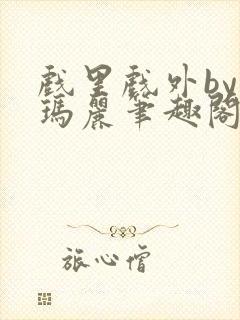 戲里戲外by
瑪麗筆趣閣
旅心僧